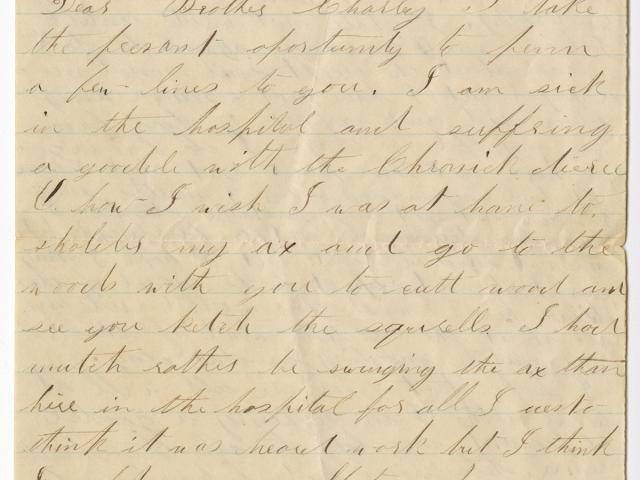 Dear Brother Charley I take
the pesant oportunity to penn
a few lines to you. I am sick
in the hospital and suffring
a goodele with the Chronick dieree
O how I wish I was at hame to
sholder my ax and go to the
woods with you to cutt wood and
see you ketch the squrells I had
mutch rather be swinging the ax than
hire in the hospital for all I uesto
think it was heard work but I think
I